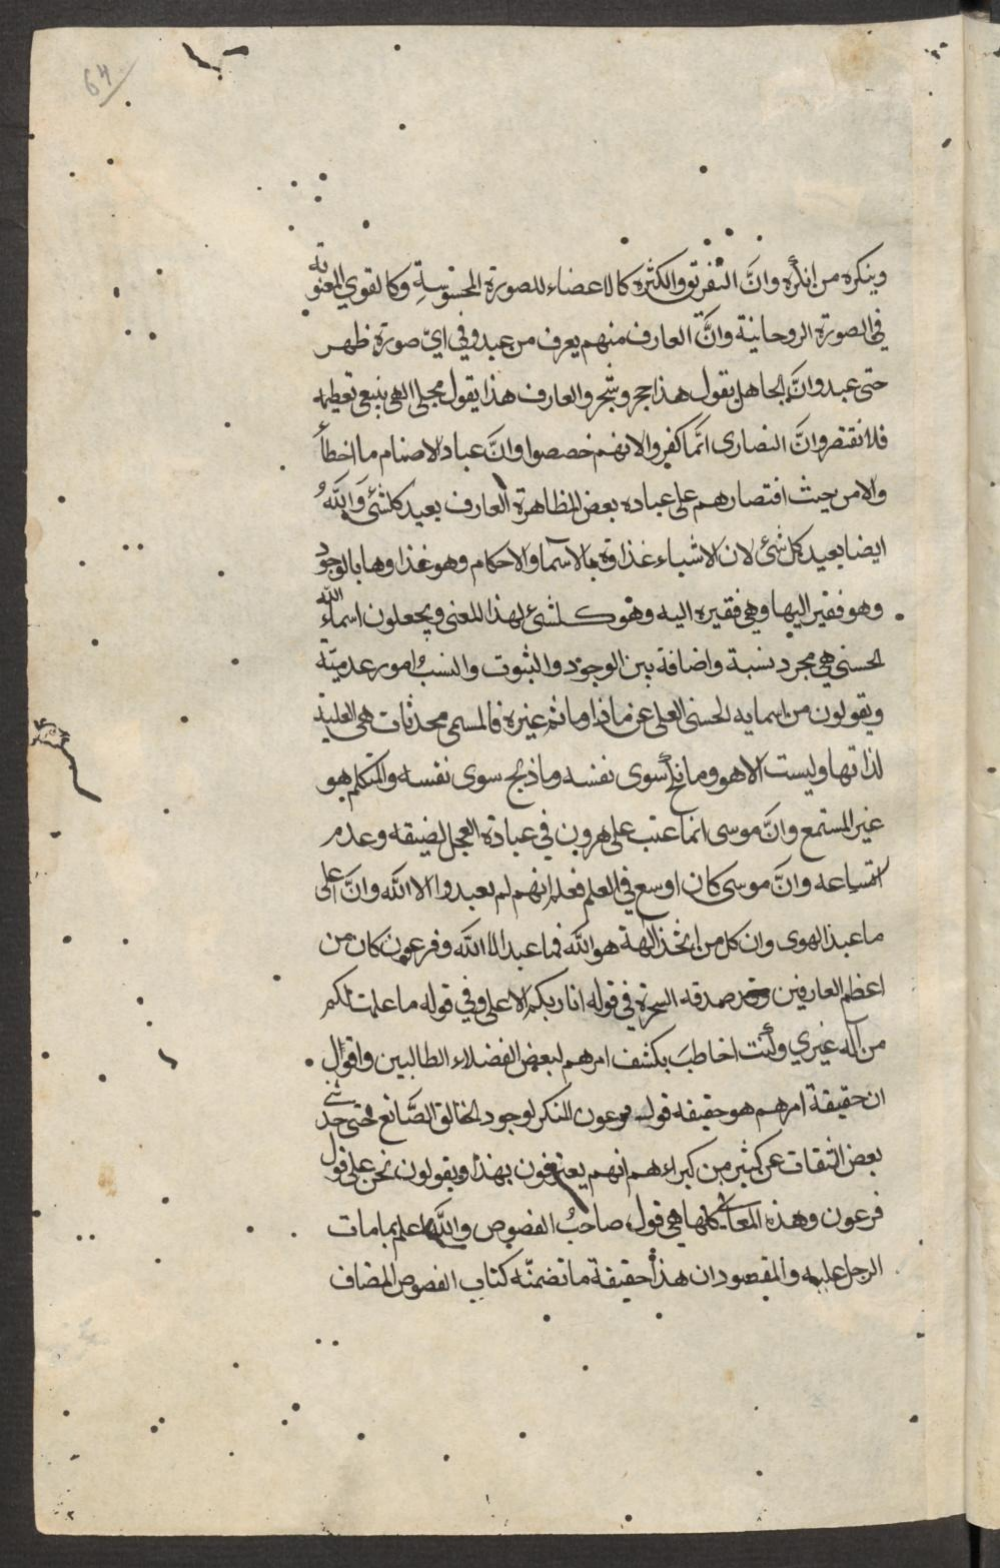 64
وينكره من انكره وانَّ التفريق والكثرة كالاعضاء للصورة المحسوسةِ وكالقوي المعنويه
في الصورة الروحانية وانَّ العارف منهم يعرف من عبد وفي ايّ صورة ظهر
حتى عبد وانَّ الجاهل يقول هذا حجر وشجر والعارف هذا يقول مجلي الهي ينبغي تعظيمه
فلا نقتصر وانَّ النصارى انما كفروا لانهم خصصوا وانَّ عباد الاصنام ما اخطأ
والا من حيث اقتصارهم على عباده بعض المظاهرة العارف يعبد كلشئ وَاللهُ
ايضا يعبد كل شئ لان الاشياء غذاوه بالاسما والاحكام وهو غذاوها بالوجود
وهو فقير اليها وهي فقيره اليه وهو كلشئ لهذا المعنى ويجعلون اسماء الله
الحسنى هي مجرد نسبة واضافة بين الوجود والثبوت والنسب امور عدمية
ويقولون من اسمايه الحسنى العلى عن ماذا وما ثم غيره فالمسمى محدثات هي العلية
لذاتها وليست الا هو وما نكح سوى نفسه وما ذبح سوى نفسه والمتكلم هو
عين المستمع وانَّ موسى انما عتب على هرون في عبادة العجل لضيقه وعدم
اتساعه وانَّ موسى كان اوسع في العلم فعلم انهم لم يعبدوا الا الله وانَّ اعلى
ما عبد الهوى وان كل من اتخذ الهة هو الله فما عبد الا الله وفرعون كان من
اعظم العارفين وقد صدقه السحرة في قوله انا ربكم الاعلى وفي قوله ما علمت لكم
من اله غيري وكنت اخاطب بكشف امرهم لبعض الفضلاء الطالبين واقول
ان حقيقة امرهم هو حقيقه قول فرعون المنكر لوجود الخالق الصَّانع حتى حدثني
بعض الثقات عن كثير من كبراءهم انهم يعترفون بهذا ويقولون نحن على قول
فرعون وهذه المعاني كلها هي قول صاحبُ الفصوص والله اعلم بما مات
الرجل عليه والمقصود ان هذا حقيقة ما تضمنّه كتاب الفصوص المضاف